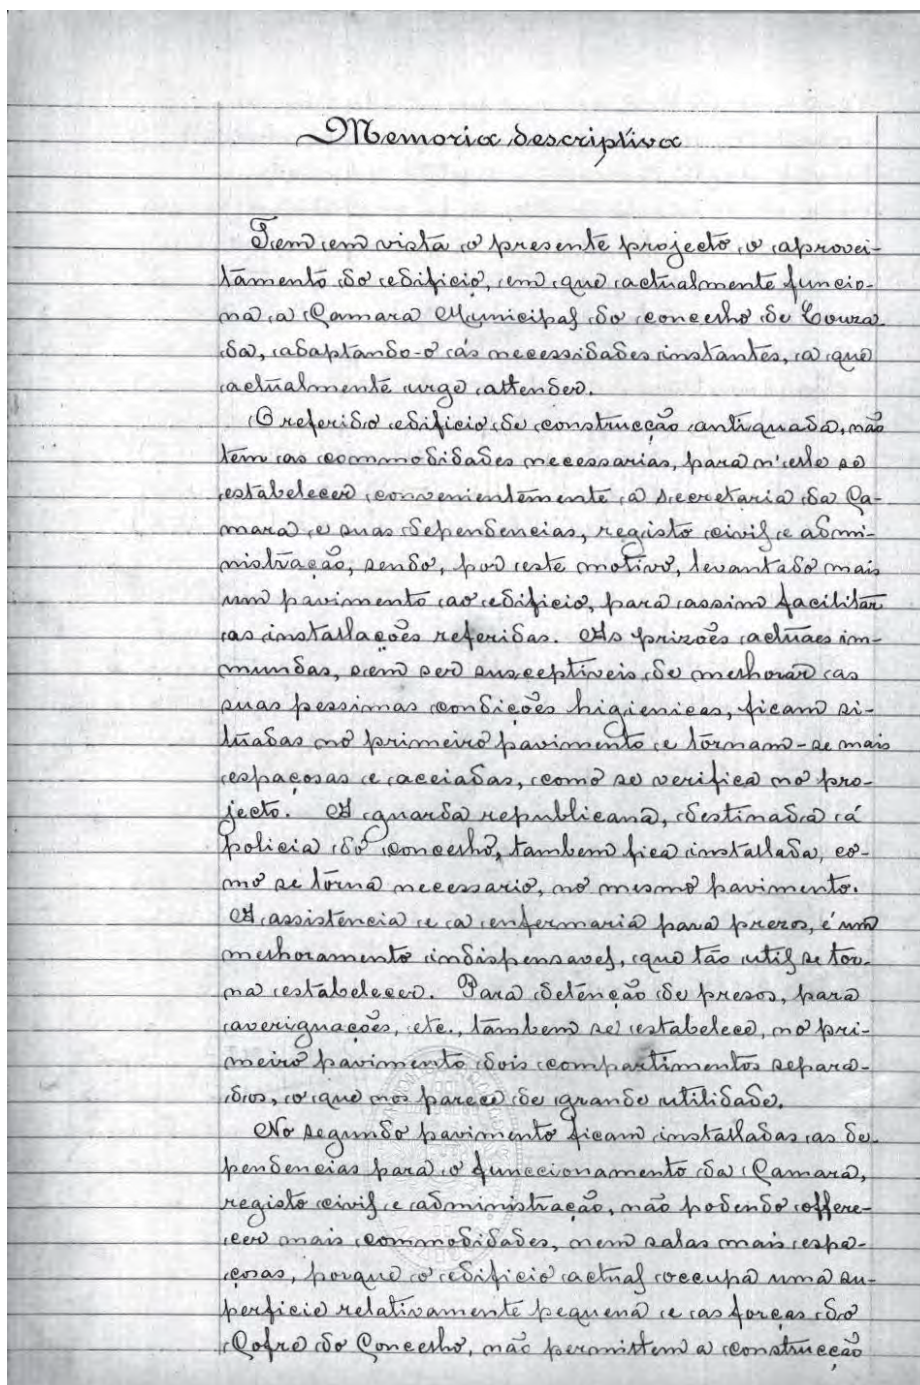 Memoria descriptiva
Tem em vista o presente projecto o aprovei-
tamento do edificio, em que actualmente funcio-
na a Camara Municipal do concelho de Louza-
da, adaptando-o ás necessidades instantes, a que
actualmente urge attender.
O referido edificio de construcção antiquada, não
tem as commodidades necessarias, para n'elle se
estabelecer convenientemente a secretaria da Ca-
mara e suas dependencias, registo civil e admi-
nistração, sendo, por este motivo, levantado mais
um pavimento ao edificio, para assim facilitar
as installações referidas. As prizões actuaes im-
mundas, sem ser susceptiveis de melhorar as
suas pessimas condições higienicas, ficam si-
tuadas no primeiro pavimento e tornam-se mais
espaçosas e acciadas, como se verifica no pro-
jecto. A guarda republicana, destinada á
policia do concelho, tambem fica installada, co-
mo se torna necessario, no mesmo pavimento.
A assistencia e a enfermaria para prezos, é um
melhoramento indispensavel, que tão util se tor-
na estabelecer. Para detenção de presos, para
averiguações, etc., tambem se estabelece, no pri-
meiro pavimento dois compartimentos separa-
dos, o que nos parece de grande utilidade.
No segundo pavimento ficam installadas as de-
pendencias para o funccionamento da Camara,
registo civil e administração, não podendo offere-
cer mais commodidades, nem salas mais espa-
çosas, porque o edificio actual occupa uma su-
perficie relativamente pequena e as forças do
Cofre do Concelho, não permittem a construcção